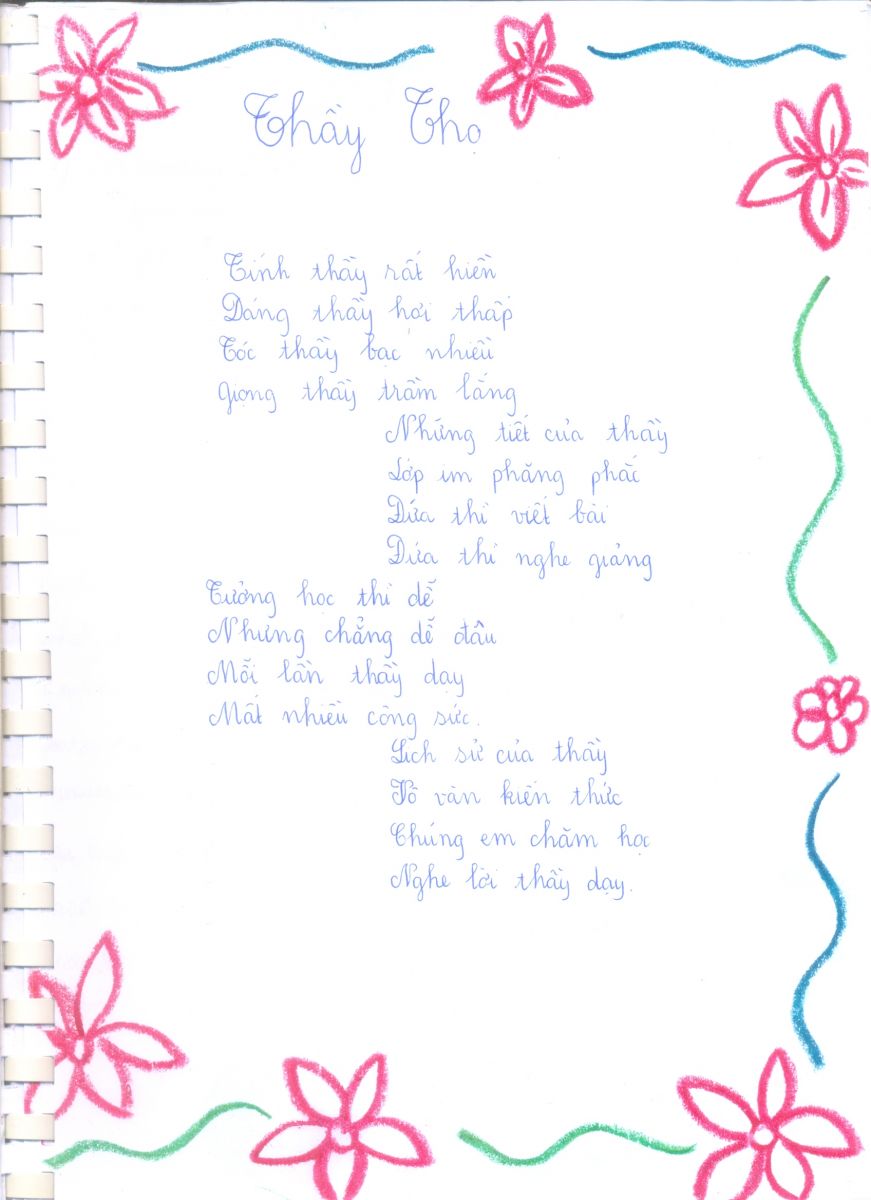 Thầy Thọ
Tính thầy rất hiền
Dáng thầy hơi thấp
Tóc thầy bạc nhiều
Giọng thầy trầm lắng
Những tiết của thầy
Lớp im phăng phắc
Đứa thì viết bài
Đứa thì nghe giảng
Tưởng học thì dễ
Nhưng chẳng dễ đâu
Mỗi lần thầy dạy
Mất nhiều công sức.
Lịch sử của thầy
Vô vàn kiến thức
Chúng em chăm học
Nghe lời thầy dạy.